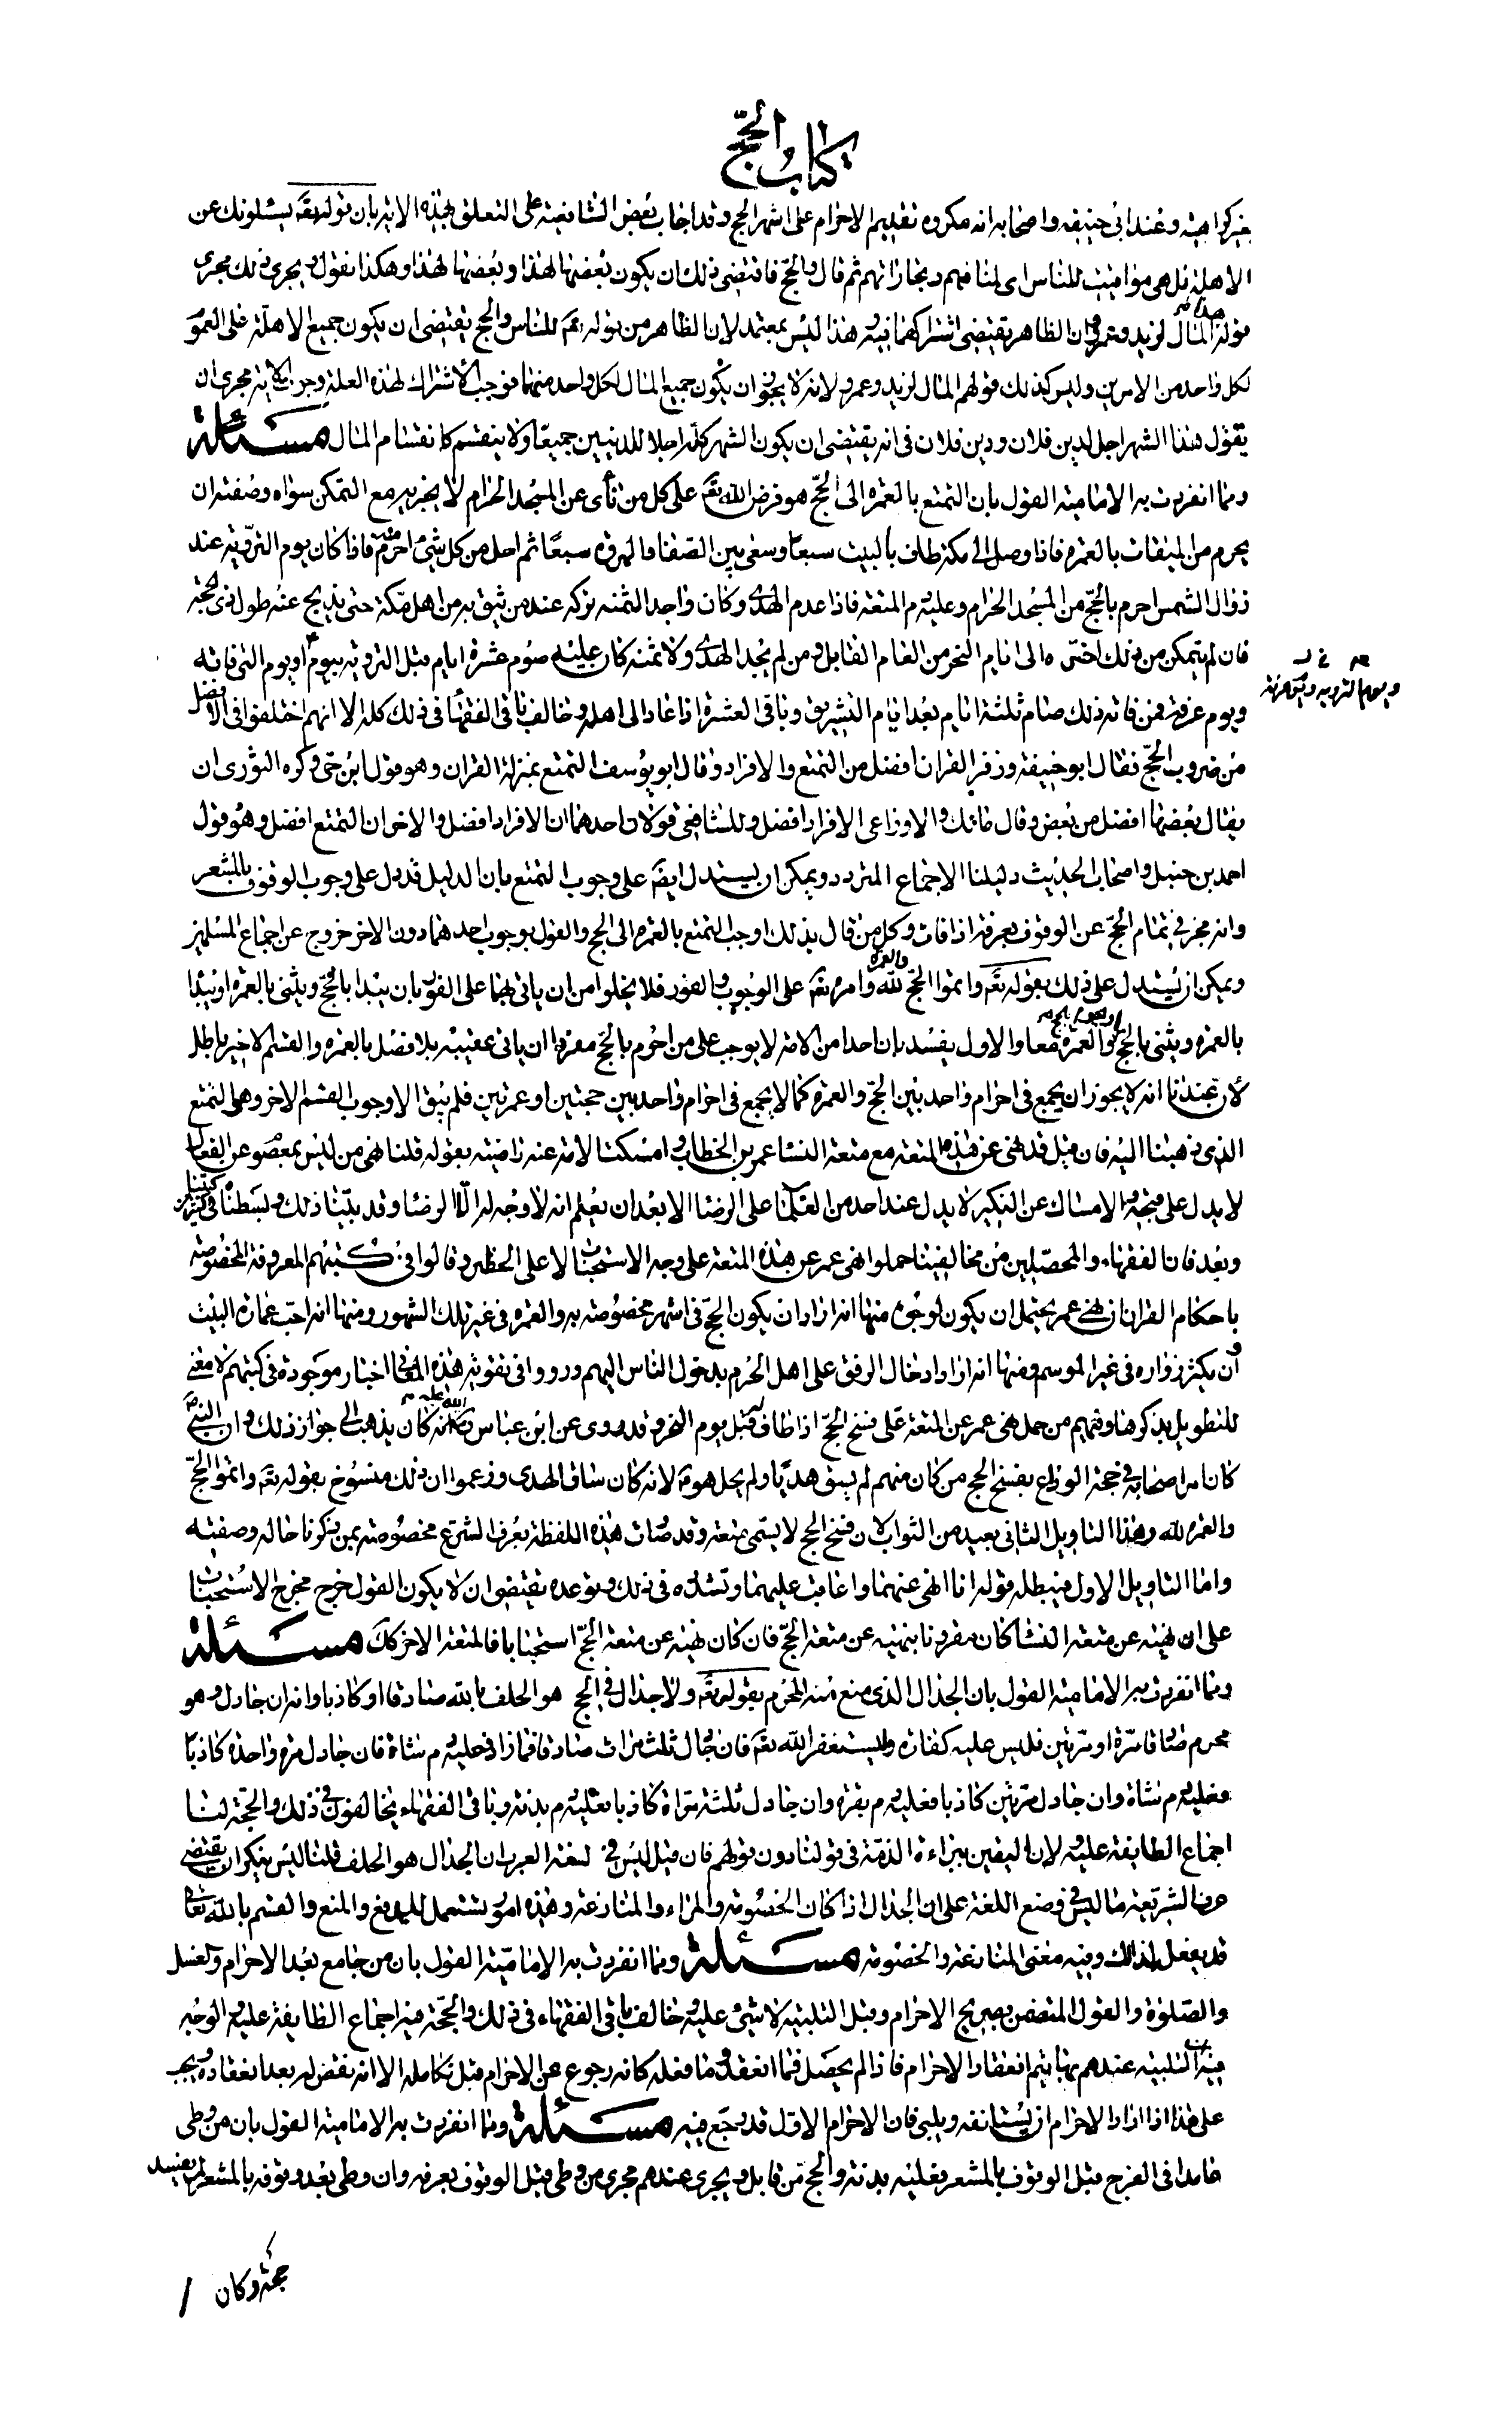 كتاب الحج
بغير كراهية وعند ابي حنيفه واصحابه انه مكروه تقديم الاحرام على اشهر الحج وقد اجاب بعض الشافعية على التعلق بهذه الاية بان قوله تعه يسئلونك عن
الاهلة قل هى مواقيت للناس اى لمنافعهم وتجاراتهم ثم قال والحج فاقتضى ذلك ان يكون بعضها لهذا وبعضها لهذا وهكذا نقول ويجرى ذلك مجرى
قوله هذا المال لزيد وعمرو فى ان الظاهر يقتضى اشتراكهما فيه وهذا ليس بمعتمد لان الظاهر من قوله تعه للناس والحج يقتضى ان يكون جميع الاهلة على العموم
لكل واحد من الامرين وليس كذلك قولهم المال لزيد وعمرو لانه لا يجوز ان يكون جميع المال لكل واحد منهما فوجب الاشتراك لهذه العلة وجرت الاية مجرى ان
يقول هذا الشهر اجل لدين فلان ودين فلان فى انه يقتضى ان يكون الشهر كله اجلا للدينين جميعا ولا ينقسم كانقسام المال مسئلة
ومما انفردت به الامامية القول بان التمتع بالعمره الى الحج هو فرض الله تعه على كل من نأى عن المسجد الحرام لا يجزيه مع التمكن سواه وصفته ان
يحرم من الميقات بالعمره فاذا وصل الى مكة طاف بالبيت سبعا وسعى بين الصفا والمروه سبعا ثم احل من كل شىء احرم منه فاذا كان يوم التروية عند
زوال الشمس احرم بالحج من المسجد الحرام وعليه دم المتعة فاذا عدم الهدى وكان واجد الثمنه تركه عند من يثق به من اهل مكة حتى يذبح عنه طول ذى الحجة
فان لم يتمكن من ذلك اخره الى ايام النحر من العام القابل ومن لم يجد الهدى ولا ثمنه كان عليه صوم عشرة ايام قبل التروية بيوم ويوم التروية فاته
ويوم التروية ويوم عرفة
ويوم عرفة فمن فاته ذلك صام ثلثة ايام بعد ايام التشريق وباقى العشرة اذا عاد الى اهله وخالف باقى الفقهاء فى ذلك كله الا انهم اختلفوا فى الافضل
من ضروب الحج فقال ابو حنيفة وزفر القران افضل من التمتع والافراد وقال ابو يوسف التمتع بمنزلة القران وهو قول ابن حى وكره الثورى ان
يقال بعضها افضل من بعض وقال مالك والاوزاعى الافراد افضل وللشافعى قولان احدهما ان الافراد افضل والاخر ان التمتع افضل وهو قول
احمد بن حنبل واصحاب الحديث دليلنا الاجماع المتردد ويمكن ان يستدل ايضه على وجوب التمتع بان الدليل قد دل على وجوب الوقوف بالمشعر
وانه مجز فى تمام الحج عن الوقوف بعرفة اذا فات وكل من قال بذلك اوجب التمتع بالعمره الى الحج والقول بوجوب احدهما دون الاخر خروج عن اجماع المسلمين
ويمكن ان يستدل على ذلك بقوله تعه واتموا الحج والعمرة لله وامره تعه على الوجوب والفور فلا يخلوا من ان ياتى بهما على الفور بان يبدا بالحج ويثنى بالعمره او يبدا
بالعمره ويثنى بالحج او يحرم بالحج والعمرة معا والاول يفسد بان احدا من الامة لا يوجب على من احرم بالحج مفردا ان ياتى عقيبه بلا فصل بالعمره والقسم الاخير باطل
لان عندنا انه لا يجوز ان يجمع فى احرام واحد بين الحج والعمره كما لا يجمع فى احرام واحد بين حجتين او عمرتين فلم يبق الا وجوب القسم الاخر وهو التمتع
الذى ذهبنا اليه فان قيل قد نهى عن هذه المتعة مع متعة النسا عمر بن الخطاب وامسكت الامة عنه راضية بقوله قلنا نهى من ليس بمعصوم عن الفعل
لا يدل على قبحه والامساك عن النكير لا يدل عند احد من العلماء على الرضا الا بعد ان يعلم انه لا وجه له الا الرضا وقد بينا ذلك وبسطناه فى كثير من كتبنا
وبعد فان الفقهاء والمحصلين من مخالفينا حملوا نهى عمر عن هذه المتعة على وجه الاستحباب لا على الحظر وقالوا فى كتبهم المعروفة المخصوصة
باحكام القران ان نهى عمر يحتمل ان يكون لوجوه منها انه اراد ان يكون الحج فى اشهر مخصوصة به والعمره فى غير تلك الشهور ومنها انه احب عمارة البيت
وان يكثر زواره فى غير الموسم ومنها انه اراد ادخال الرفق على اهل الحرم بدخول الناس اليهم ورووا فى تقوية هذه المعانى اخبار موجودة فى كتبهم لا معنى
للتطويل بذكرها وفيهم من حمل نهى عمر عن المتعة على فسخ الحج اذا طاف له قبل يوم النحر وقد روى عن ابن عباس رحمة الله عليه انه كان يذهب الى جواز ذلك وان النبى ص
كان امر اصحابه فى حجة الوداع بفسخ الحج من كان منهم لم يسق هديا ولم يحل هو ع لانه كان ساق الهدى وزعموا ان ذلك منسوخ بقوله تعه واتموا الحج
والعمره لله وهذا التاويل الثانى بعيد من الثواب لان فسخ الحج لا يسمى متعة وقد صارت هذه اللفظة بعرف الشرع مخصوصة بمن ذكرنا حاله وصفته
واما التاويل الاول فيبطله قوله انا انهى عنهما واعاقب عليهما وتشدده فى ذلك وتوعده يقتضى ان لا يكون القول خرج مخرج الاستحباب
على ان نهيه عن متعة النسا كان مقرونا بنهيه عن متعة الحج فان كان نهيه عن متعة الحج استحبابا فالمتعة الاخر كك مسئلة
ومما انفردت به الامامية القول بان الجدال الذى منع منه المحرم بقوله تعه ولا جدال فى الحج هو الحلف بالله صادقا او كاذبا وانه ان جادل وهو
محرم صادقا مرة او مرتين فليس عليه كفارة وليستغفر الله تعه فان جادل ثلث مرات صادقا فما زاد فعليه دم شاة فان جادل مرة واحدة كاذبا
فعليه دم شاة وان جادل مرتين كاذبا فعليه دم بقره وان جادل ثلثة مراة كاذبا فعليه دم بدنة وباقى الفقهاء يخالفون فى ذلك والحجة لنا
اجماع الطايفة عليه ولان اليقين ببراءة الذمة فى قولنا دون قولهم فان قيل ليس فى لغة العرب ان الجدال هو الحلف قلنا ليس ينكر ان يقتضى
عرف الشريعة ما ليس فى وضع اللغة على ان الجدال اذا كان الخصومة والمراء والمنازعة وهذه امور تستعمل للدفع والمنع والقسم بالله تعالى
قد يفعل لذلك وفيه معنى المنازعة والخصومة مسئلة ومما انفردت به الامامية القول بان من جامع بعد الاحرام وغسل
والصلوة والقول المتضمن بصريح الاحرام وقبل التلبية لا شىء عليه وخالف باقى الفقهاء فى ذلك والحجة فيه اجماع الطايفة عليه والوجه
فيه ان التلبية عندهم بها يتم انعقاد الاحرام فاذا لم يحصل فما انعقد وما فعله كانه رجوع عن الاحرام قبل تكامله الا انه نقض له بعد انعقاده ويجب
على هذا اذا اراد الاحرام ان يستانفه ويلبى فان الاحرام الاول قد رجع فيه مسئلة ومما انفردت به الامامية القول بان من وطى
عامدا فى الفرج قبل الوقوف بالمشعر فعليه بدنة والحج من قابل ويجرى عندهم مجرى من وطى قبل الوقوف بعرفه وان وطى بعد وقوفه بالمشعر لم يفسد
حجه وكان